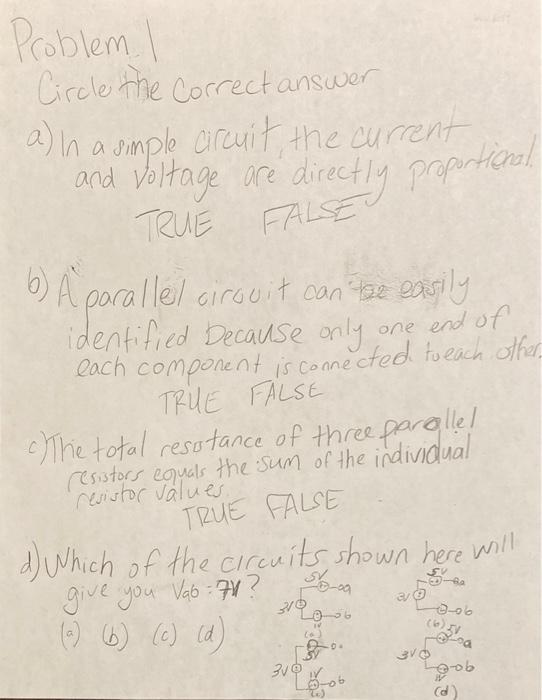 Problem 1
Circle the correct answer
a) In a simple circuit, the current
and voltage are directly proportional.
TRUE FALSE
b) A parallel circuit can be easily
identified because only one end of
each component is connected to each other.
TRUE FALSE
c) The total resistance of three parallel
resistors equals the sum of the individual
resistor values.
TRUE FALSE
d) Which of the circuits shown here will
give you Vab = 7V?
(a) (b) (c) (d)
5V a
3V
1V b
(a)
5V a
3V
b
(b)
5V a
3V
1V b
(c)
5V a
3V
1V b
(d)